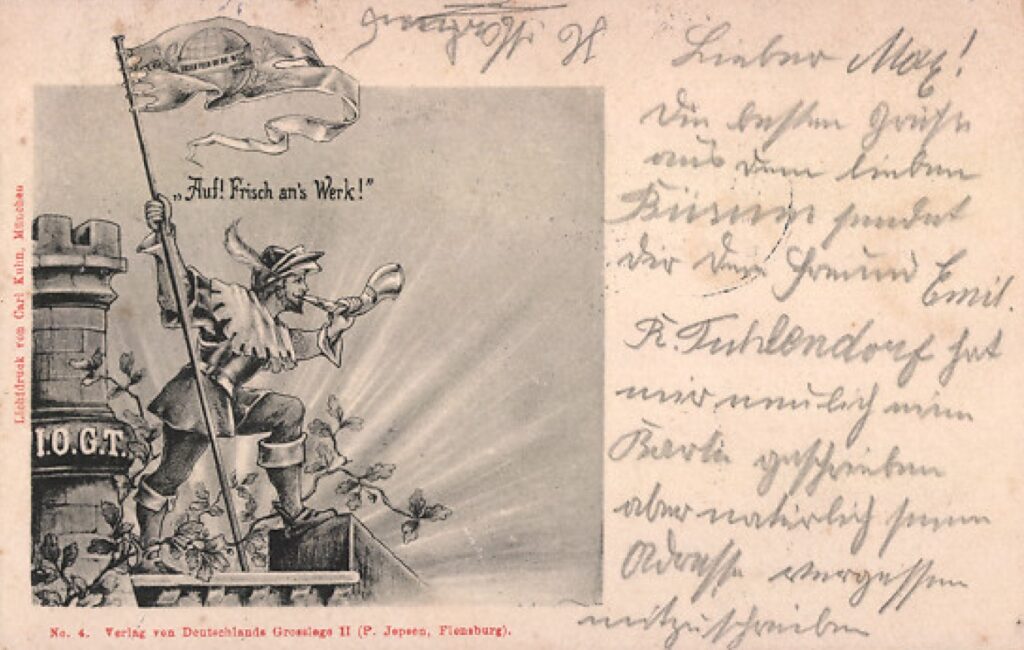 „Auf! Frisch an's Werk!"
I.O.G.T.
Lichtdruck von Carl Kuhn, München
No. 4. Verlag von Deutschlands Grossloge II (P. Jepsen, Flensburg).
Lieber Max!
Die besten Grüße
aus dem lieben
Büsum sendet
dir dein Freund Emil.
K. Tuhlendorf hat
mir neulich eine
Karte geschrieben
aber natürlich seine
Adresse vergessen
mitzuschreiben